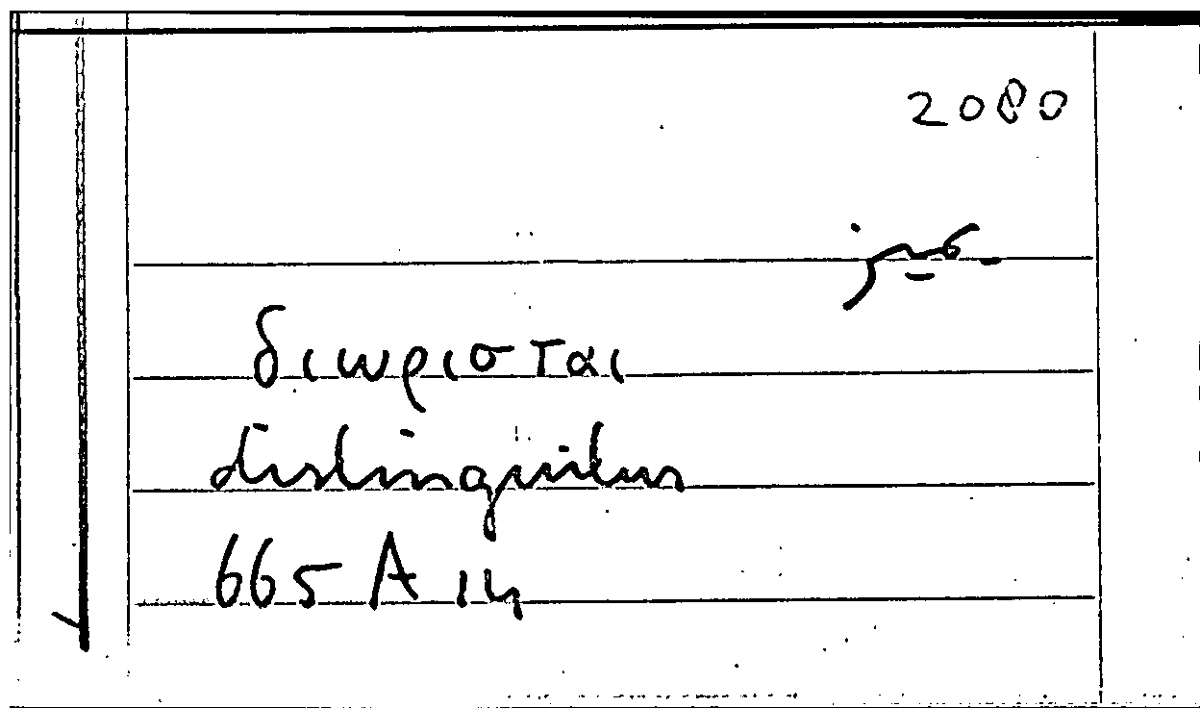 2080
διωρισται
distinguitur
665 A 14